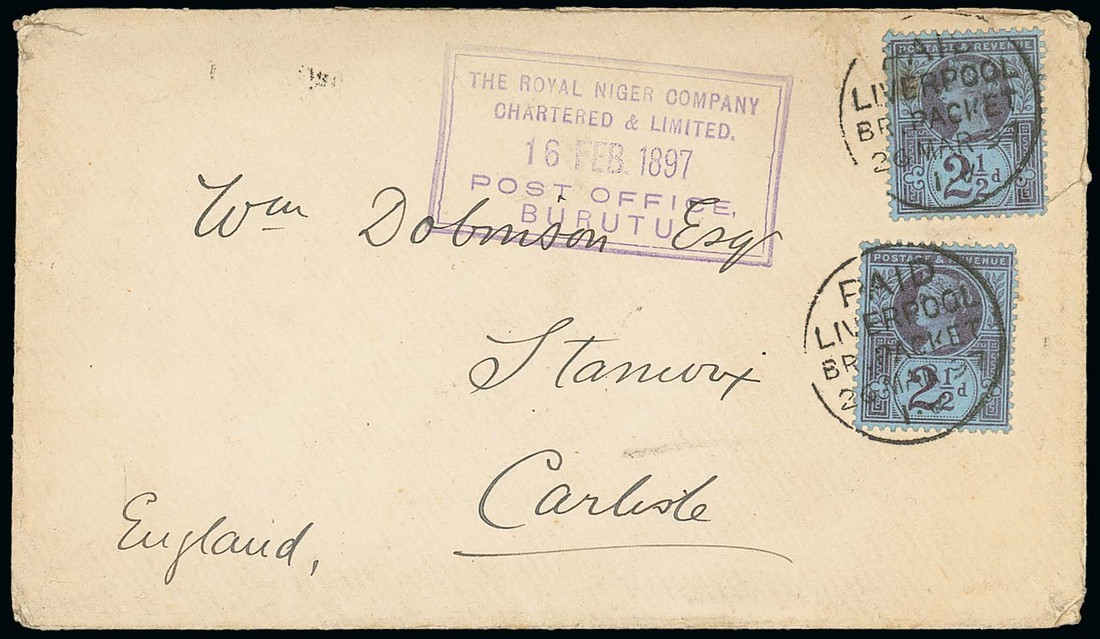 THE ROYAL NIGER COMPANY
CHARTERED & LIMITED.
16 FEB. 1897
POST OFFICE,
BURUTU
POSTAGE & REVENUE
2½d
PAID
LIVERPOOL
BR. PACKET
MAR 97
POSTAGE & REVENUE
2½d
PAID
LIVERPOOL
BR. PACKET
MAR 97
Wm Dobinson Esq
Stanwix
Carlisle
England,